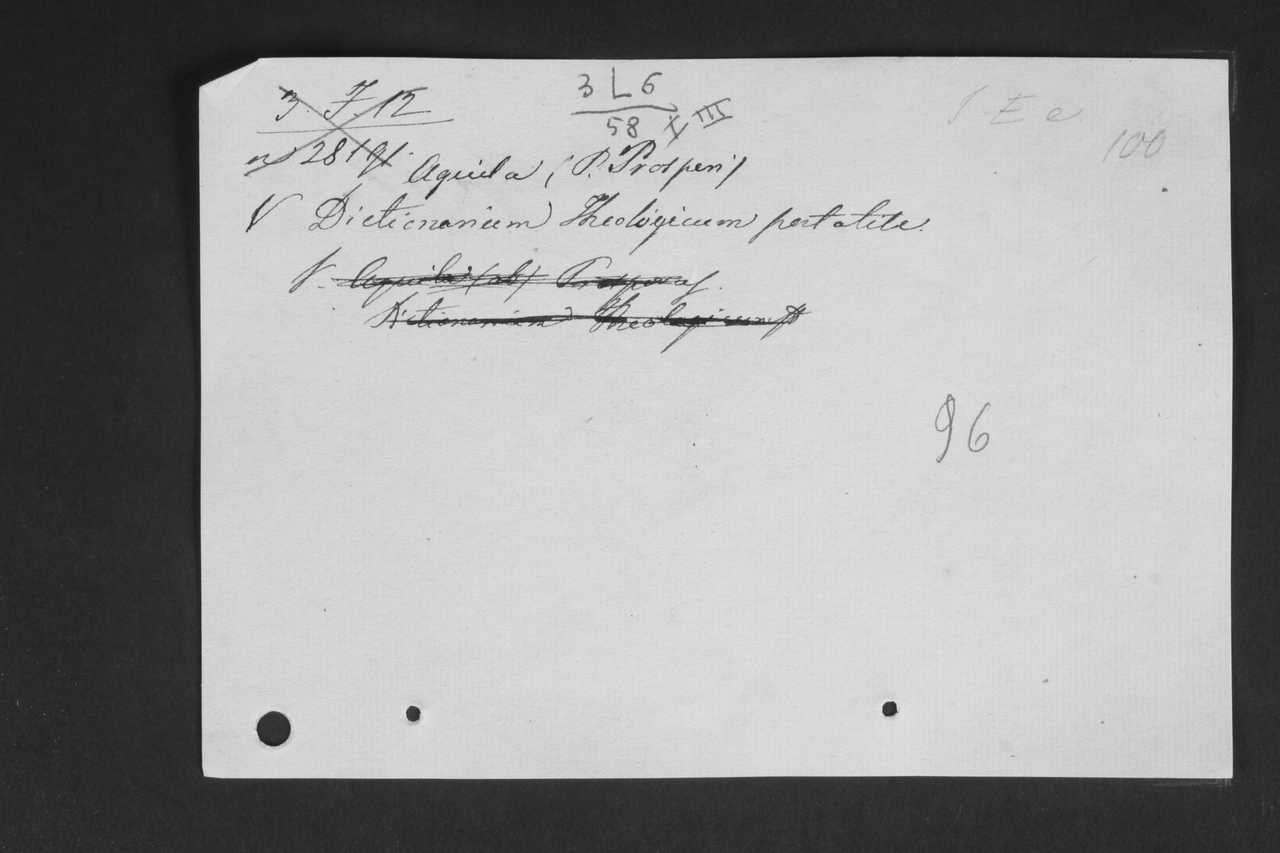 3 L 6
58 I III
3. F. 12
I E e
100
Aquila (P. Prosperi)
V Dictionarium Theologicum portatile.
V. Aquila (ab) Prosperus.
Dictionarium Theologicum
96